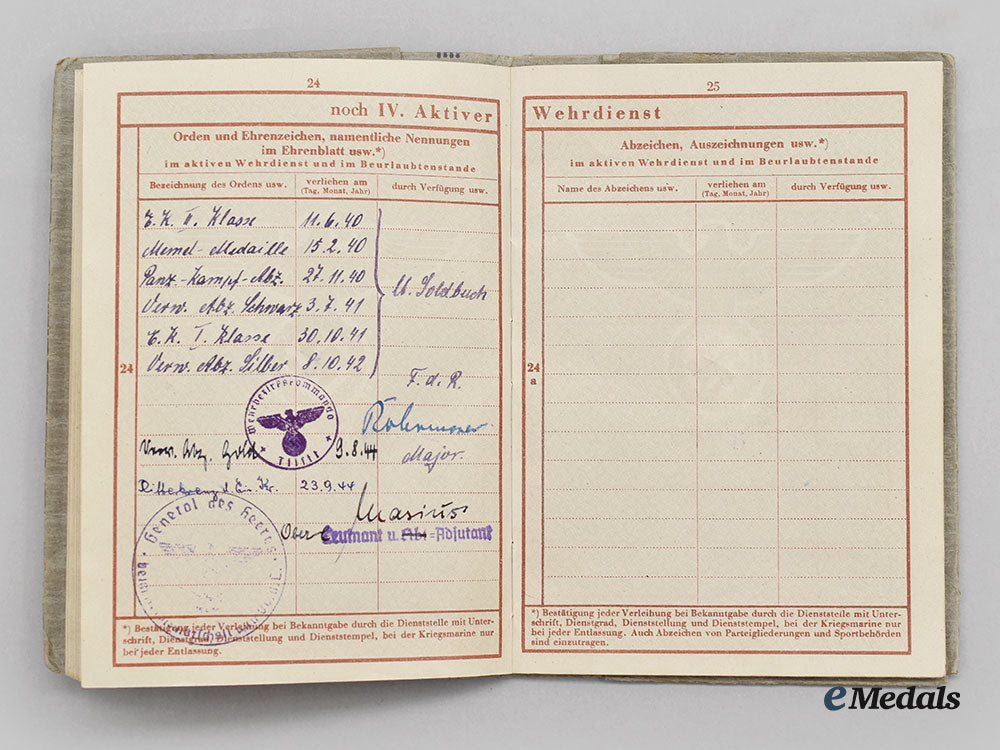 24
noch IV. Aktiver
Orden und Ehrenzeichen, namentliche Nennungen
im Ehrenblatt usw.*)
im aktiven Wehrdienst und im Beurlaubtenstande
Bezeichnung des Ordens usw.
verliehen am
(Tag, Monat, Jahr)
durch Verfügung usw.
E. K. II. Klasse 11.6.40
Memel-Medaille 15.2.40
Panz-Kampf-Abz. 27.11.40
Verw. Abz. Schwarz 3.7.41
E. K. I. Klasse 30.10.41
Verw. Abz. Silber 8.10.42
lt. Soldbuch
24
F. d. R.
Wehrbezirkskommando
Tilsit
Major
Verw. Abz. Gold 9.8.44
Ritterkreuz d. Ei. Kr. 23.9.44
General des Heeres
Ober Leutnant u. Abt=Adjutant
*) Bestätigung jeder Verleihung bei Bekanntgabe durch die Dienststelle mit Unter-
schrift, Dienstgrad, Dienststellung und Dienststempel, bei der Kriegsmarine nur
bei jeder Entlassung.
25
Wehrdienst
Abzeichen, Auszeichnungen usw.*)
im aktiven Wehrdienst und im Beurlaubtenstande
Name des Abzeichens usw.
verliehen am
(Tag, Monat, Jahr)
durch Verfügung usw.
24
a
*) Bestätigung jeder Verleihung bei Bekanntgabe durch die Dienststelle mit Unter-
schrift, Dienstgrad, Dienststellung und Dienststempel, bei der Kriegsmarine nur
bei jeder Entlassung. Auch Abzeichen von Parteigliederungen und Sportbehörden
sind einzutragen.
eMedals